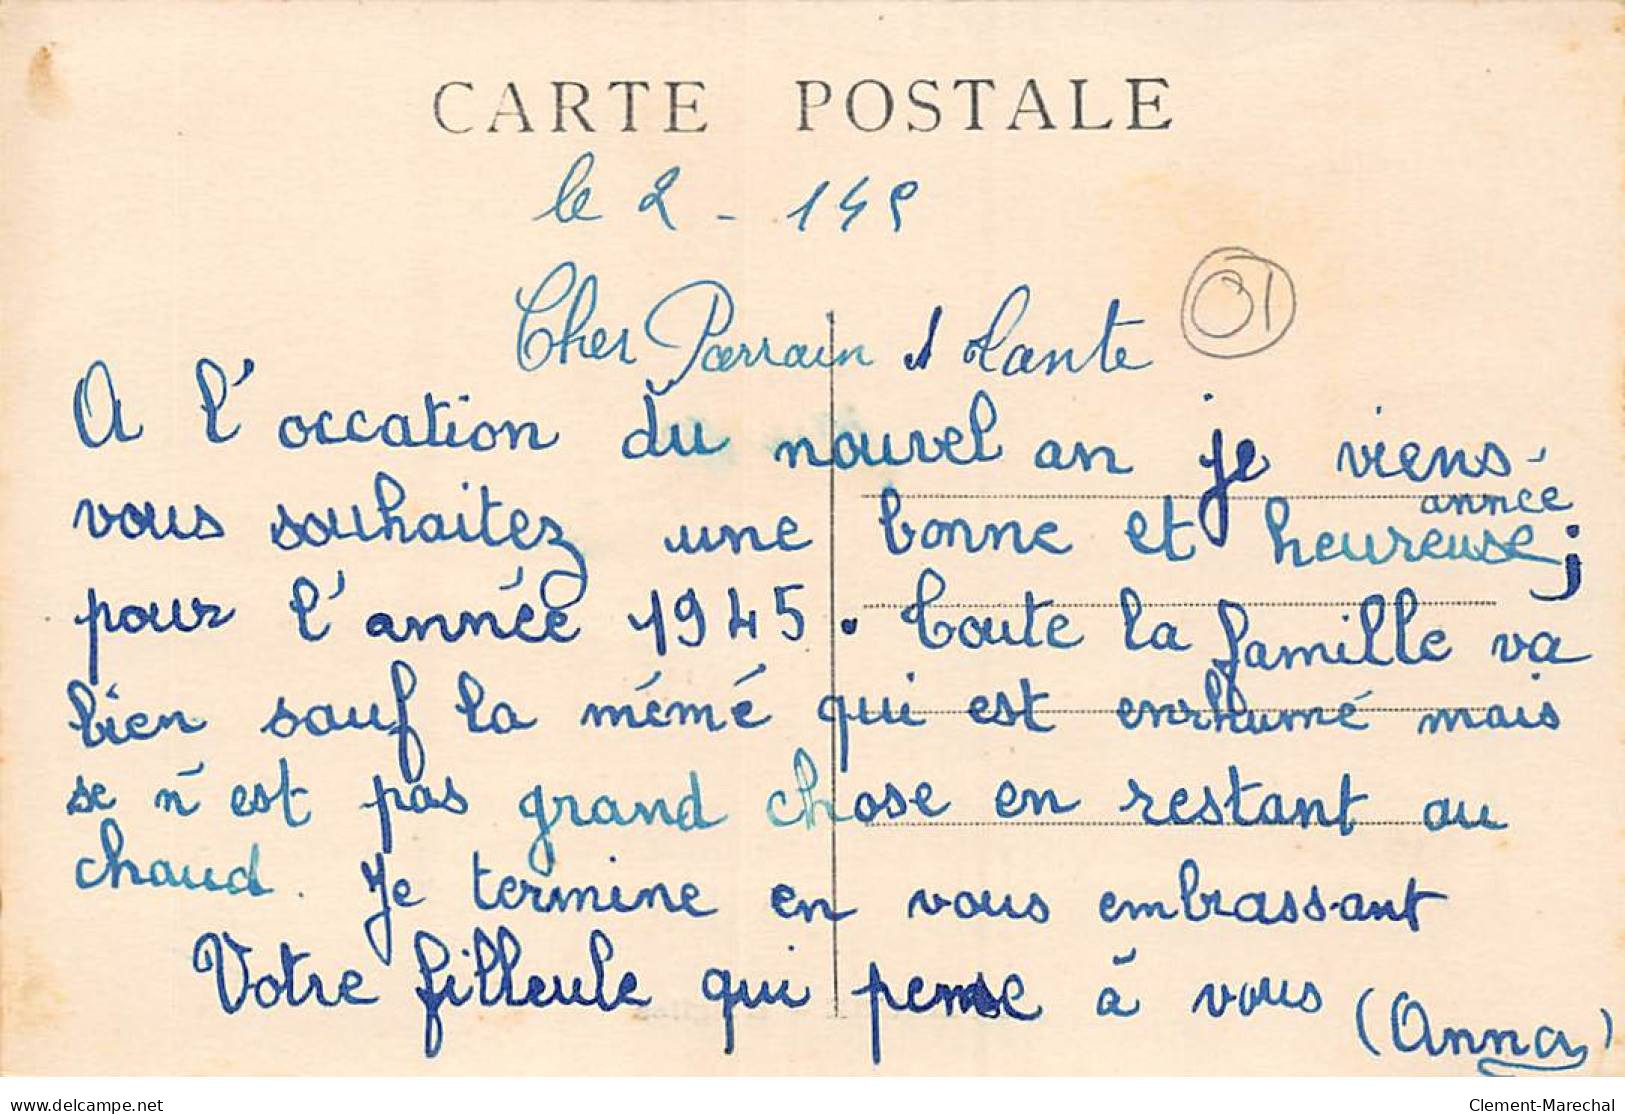 CARTE POSTALE
le 2 - 1 45
01
Cher Parrain et tante
A l'occation du nouvel an je viens
vous souhaitez une bonne et heureuse année ;
pour l'année 1945. Toute la famille va
bien sauf la mémé qui est enrhumé mais
se n'est pas grand chose en restant au
chaud. Je termine en vous embrassant
Votre filleule qui pense à vous
(Anna)
delcampe.net
Clement-Marechal